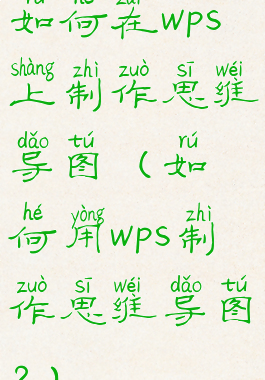 如何在WPS
shàng zhì zuò sī wéi
上制作思维
dǎo tú rú
导图（如
hé yòng zhì
何用WPS制
zuò sī wéi dǎo tú
作思维导图
?）